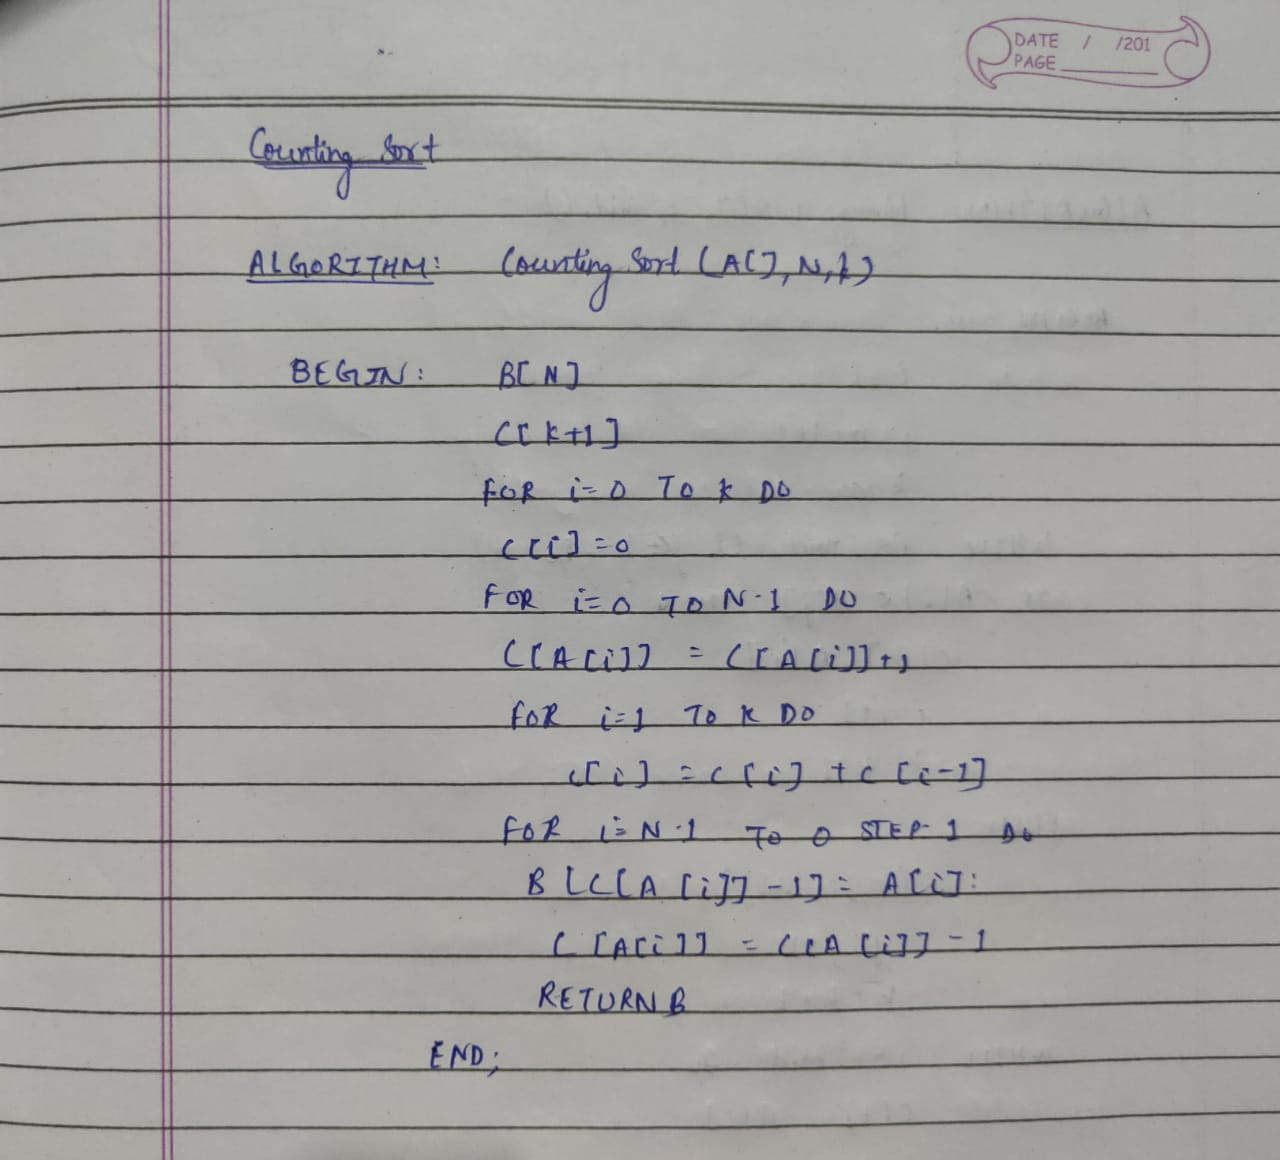 DATE / /201
PAGE
Counting Sort
ALGORITHM: Counting Sort (A[], N, k)
BEGIN: B[N]
C[k+1]
FOR i=0 TO k DO
C[i]=0
FOR i=0 TO N-1 DO
C[A[i]] = C[A[i]]+1
FOR i=1 TO K DO
C[i] = C[i] + C[i-1]
FOR i=N-1 TO 0 STEP-1 DO
B[C[A[i]]-1] = A[i]:
C[A[i]] = C[A[i]]-1
RETURN B
END;